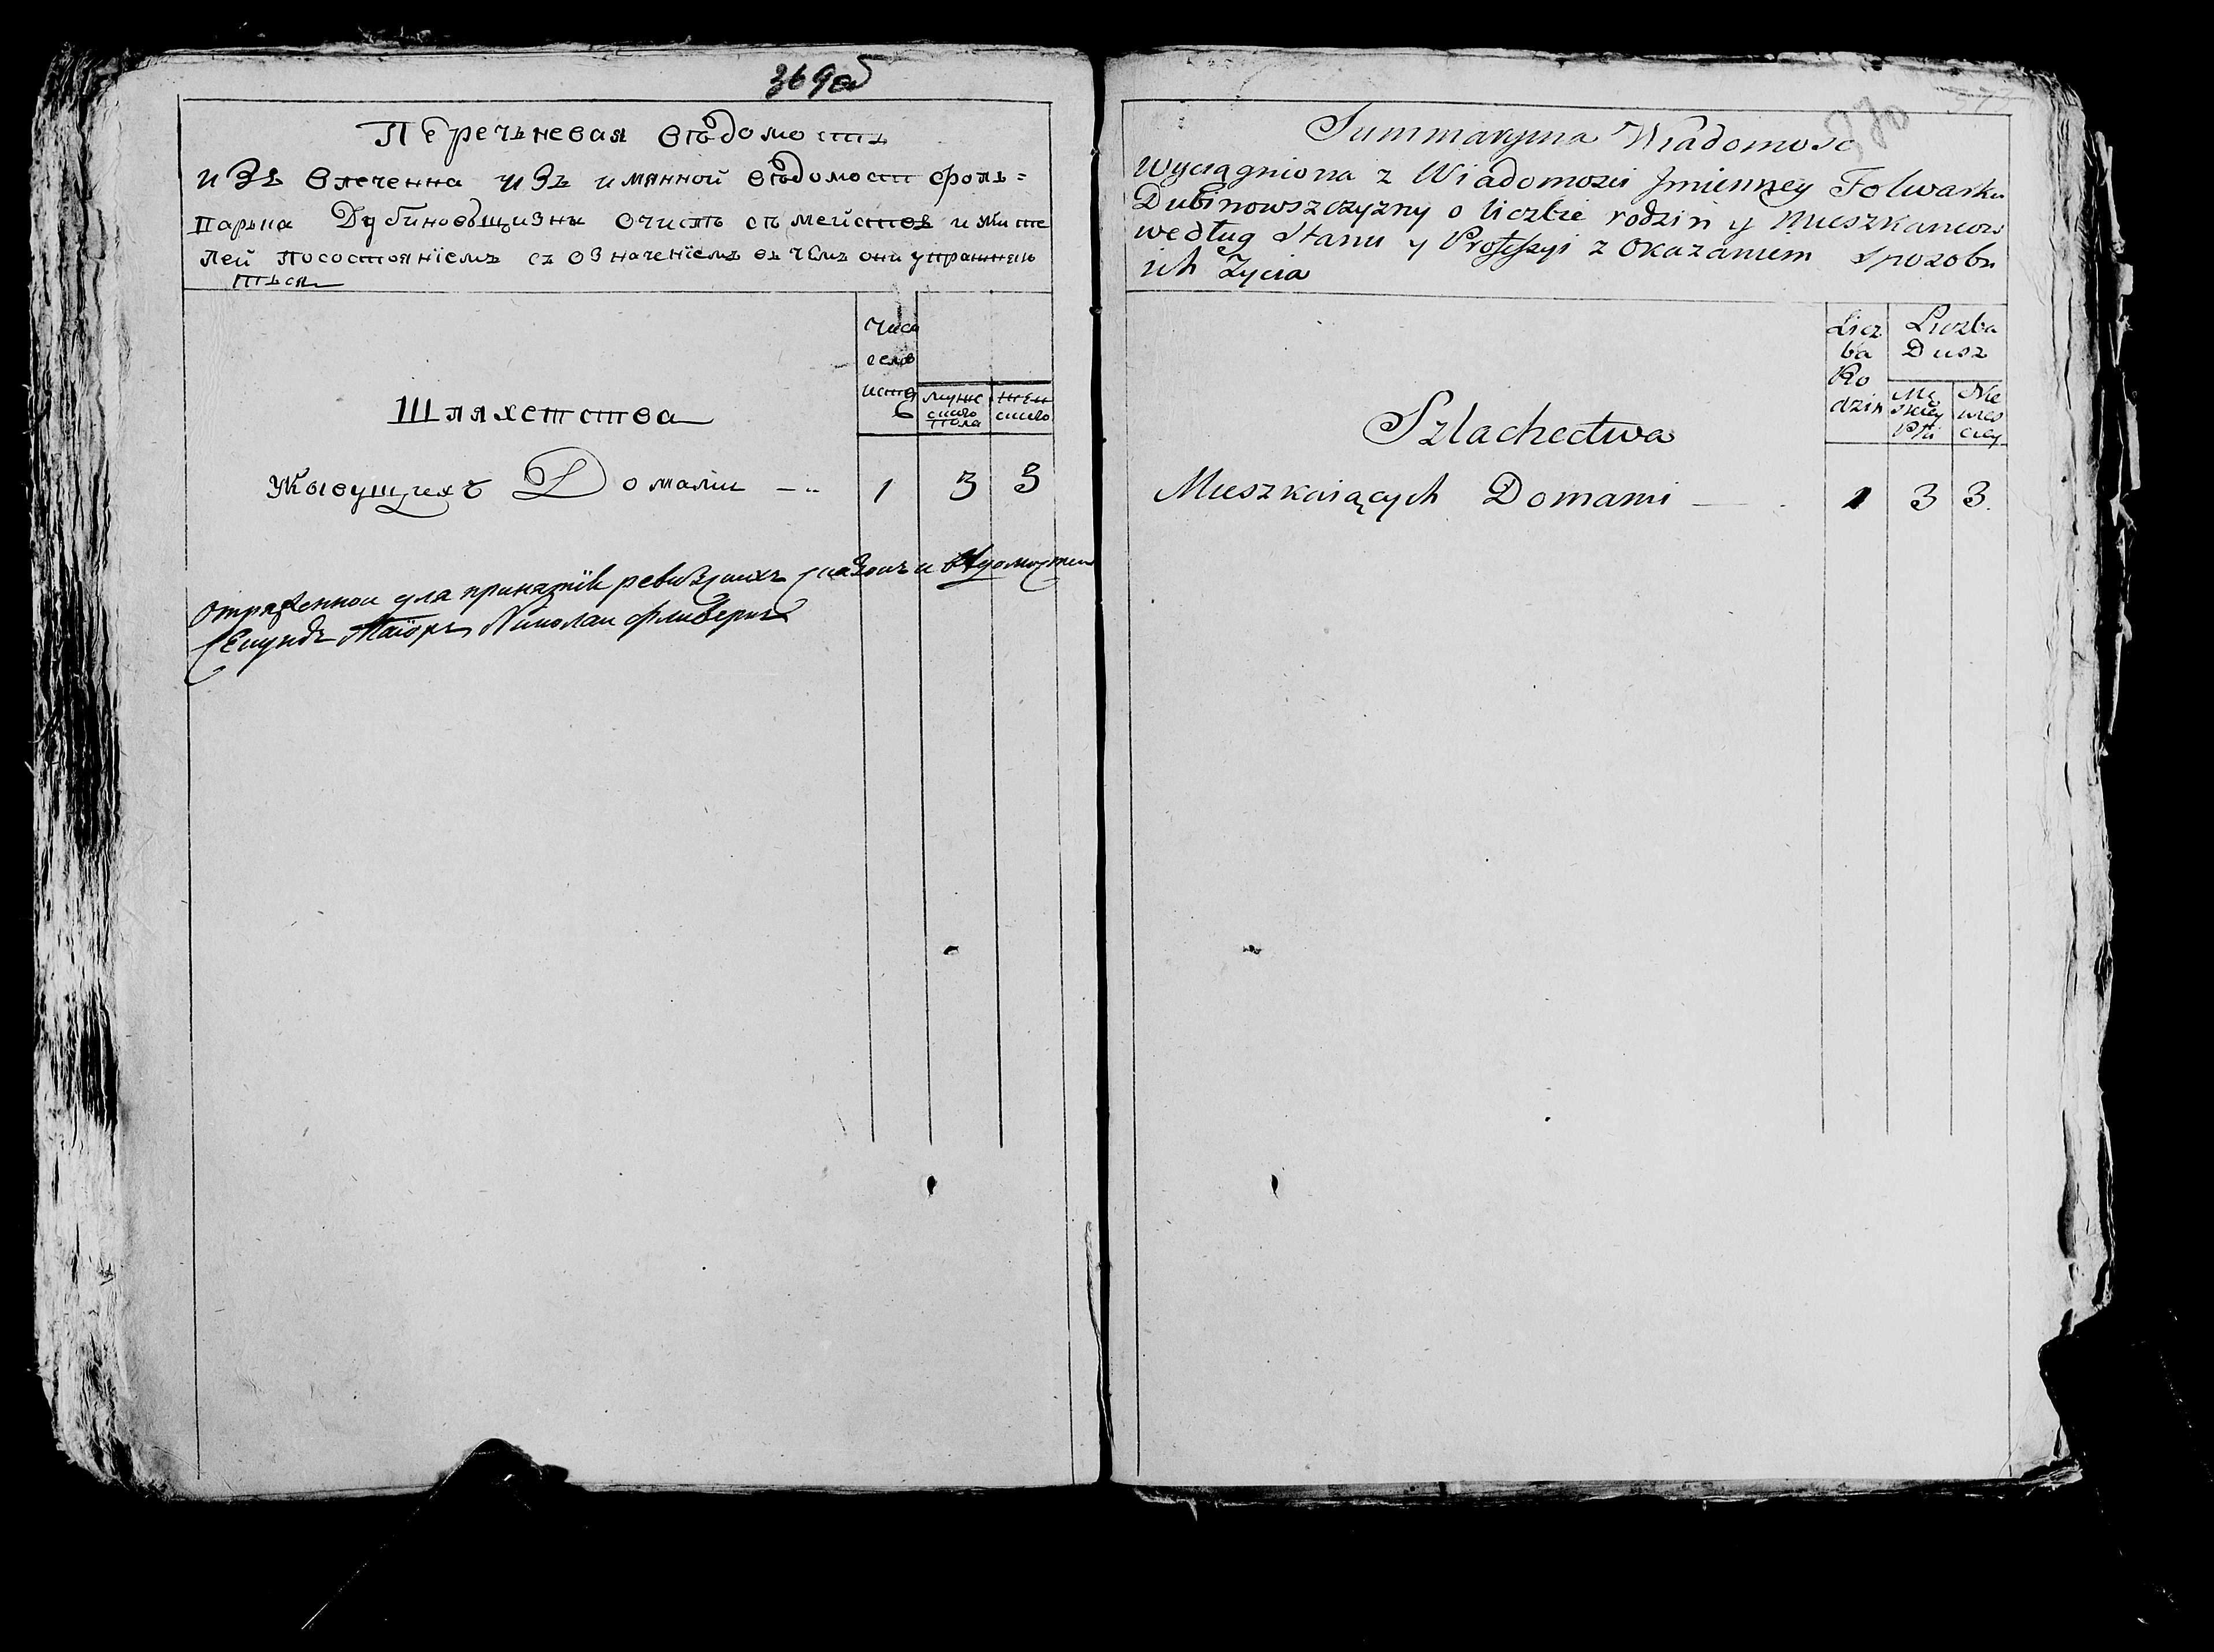 369об
Перечьневая вѣдомость
изъ влеченна изъ имянной вѣдомости фоль=
варька Дубиновьщизны очислѣ съмействъ и жите
лей посостояніемъ съ означеніемъ въ чемъ они упражняю
ться
Число
семе
иствъ
мужс
скаго
пола
жен
скаго
Шляхетства
Живущихъ Домами 1 3 3
Отряженнои для принятія ревизскихъ сказокъ и вѣдомостеи
Секундъ Маіоръ Николаи
370
Summaryina Wiadomosc
Wyciągniona z Wiadomosci Jmienney Folwarku
Dubinowszczyzny o liczbie rodzin y Mieszkancow
według Stanu y Professyi z okazaniem sposobu
ich Zycia
Licz
ba
Ro
dzin
Liczba
Dusz
Mę
skiey
Płci
Nie
wies
ciey
Szlachectwa
Mieszkaiących Domami 1 3 3.